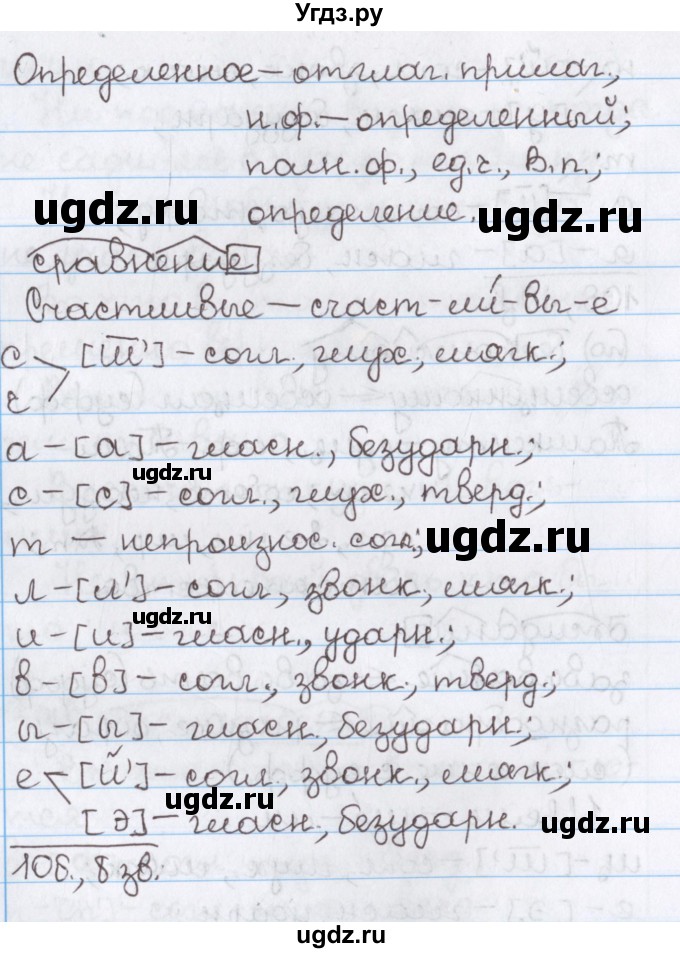 Угдз.ру
Определенное – отглаг. прилаг.,
н.ф. – определенный;
полн. ф., ед. ч., В. п.;
определение.
ugdz.ru
ugdz.ru
сравнение
Счастливые – счаст-ли́-вы-е
с [ш̅'] – согл., глух., мягк.;
ч
а – [а] – гласн., безударн.;
ugdz.ru
с – [с] – согл., глух., тверд.;
т – непроизнос. согл.;
ugdz.ru
л – [л'] – согл., звонк., мягк.;
ugdz.ru
и – [и] – гласн., ударн.;
в – [в] – согл., звонк., тверд.;
ы – [ы] – гласн., безударн.;
е [й'] – согл., звонк., мягк.;
ugdz.ru
[э] – гласн., безударн.
ugdz.ru
10б., 8 зв.
ugdz.ru